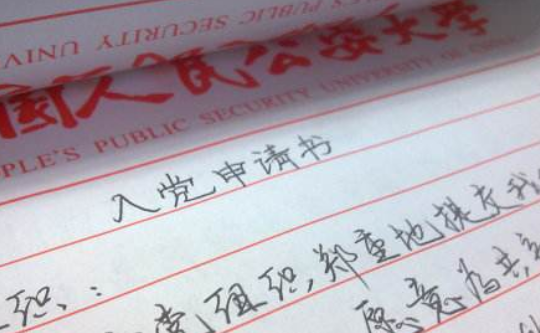 PUBLIC SECURITY UNIV
国人民公安大学
PLE'S PUBLIC SECURITY UNIVERSITY OF CHINA
入党申请书
组织：
党组织，郑重地提交我
愿意为共